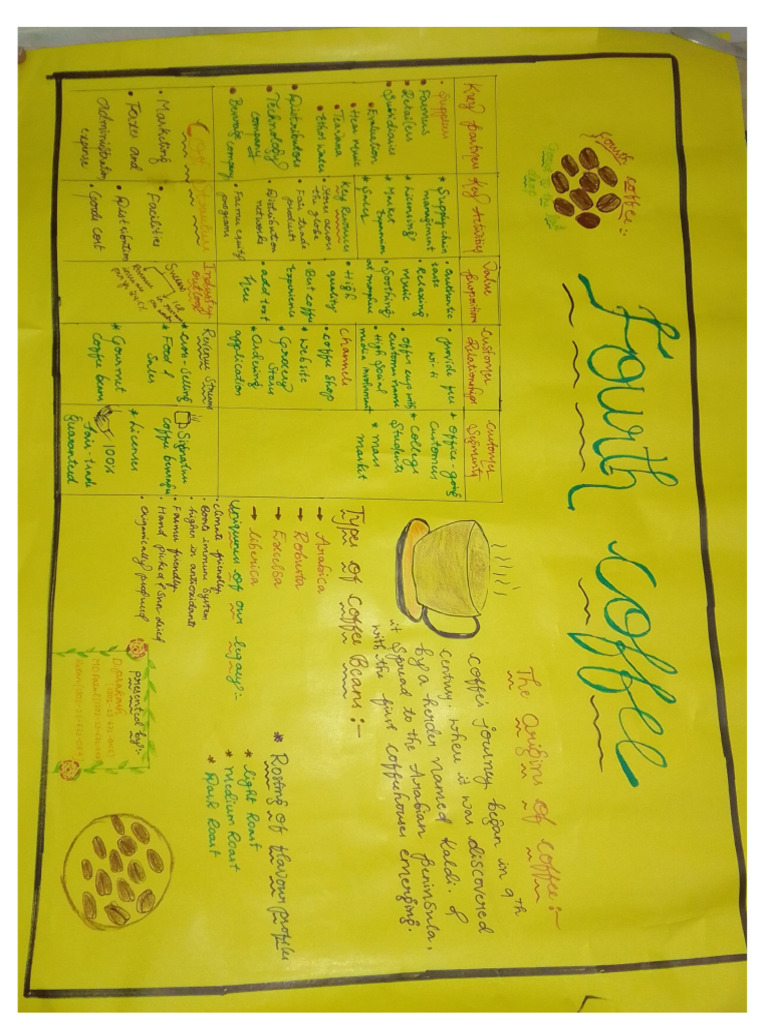 Fourth Coffee
Fourth coffee:-
Key Partners
• Suppliers
• Farmers
• Retailers
• Subsidiaries
• Evaluation
• Hear Music
• Teavana
• Ethos Water
• Distributors
• Technology
company
• Beverage company
Key Activities
* Supply chain
management
* Licensing
* Market
Expansion
* Sales
Key Resources
• Stores across
the globe
• Fair trade
products
• Distribution
networks
• Farmer equity
programs
Value
proposition
• authentic
taste
• Relaxing
music
• Soothing
atmosphere
• High
quality
• Best coffee
Experience
• add text
here
Customer
Relationships
• provide free
Wi-fi
• offer cups with
customer names
• High Social
media involvement
Channels
• coffee shop
• website
• Grocery
Store
• Ordering
application
Customer
Segments
* Office-going
Customers
* College
Students
* mass
market
Cost Structure
• Marketing
• Taxes and
administration
expense
• Facilities
• Distribution
• Goods cost
Industry
outlook
Revenue Streams
* Cross-selling
* Food
Sales
* Gourmet
Coffee beans
* Signature
coffee beverage
* Licenses
100%
fair-trade
guaranteed
The origins of coffee:-
coffee journey began in 9th
century, where it was discovered
by a herder named Kaldi. &
it spread to the Arabian Peninsula,
with the first coffeehouses emerging.
Types of Coffee Beans:-
→ Arabica
→ Robusta
→ Excelsa
→ Liberica
Uniqueness of our legacy:-
• climate friendly
• Boosts immune system
• higher in antioxidants
• Farmer friendly
• Hand picked & sun dried
• Organically produced
* Rosting of flavour profiles
* light Roast
* Medium Roast
* Dark Roast
presented by:-